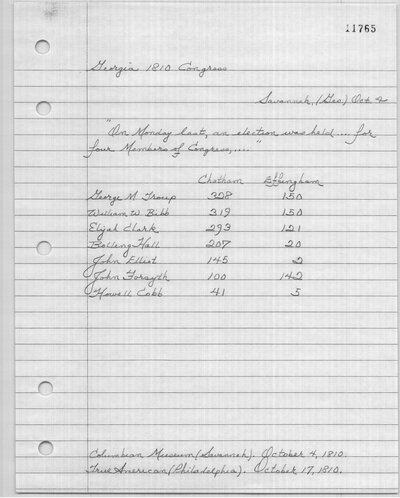 11765
Georgia 1810 Congress
Savannah, (Geo) Oct 4
"On Monday last, an election was held .... for
four Members of Congress, ...."
Chatham Effingham
George M Troup 328 150
William W Bibb 319 150
Elijah Clark 293 121
Bolling Hall 207 20
John Elliot 145 2
John Forsyth 100 142
Howell Cobb 41 5
Columbian Museum (Savannah). October 4, 1810.
True American (Philadelphia). October 17, 1810.